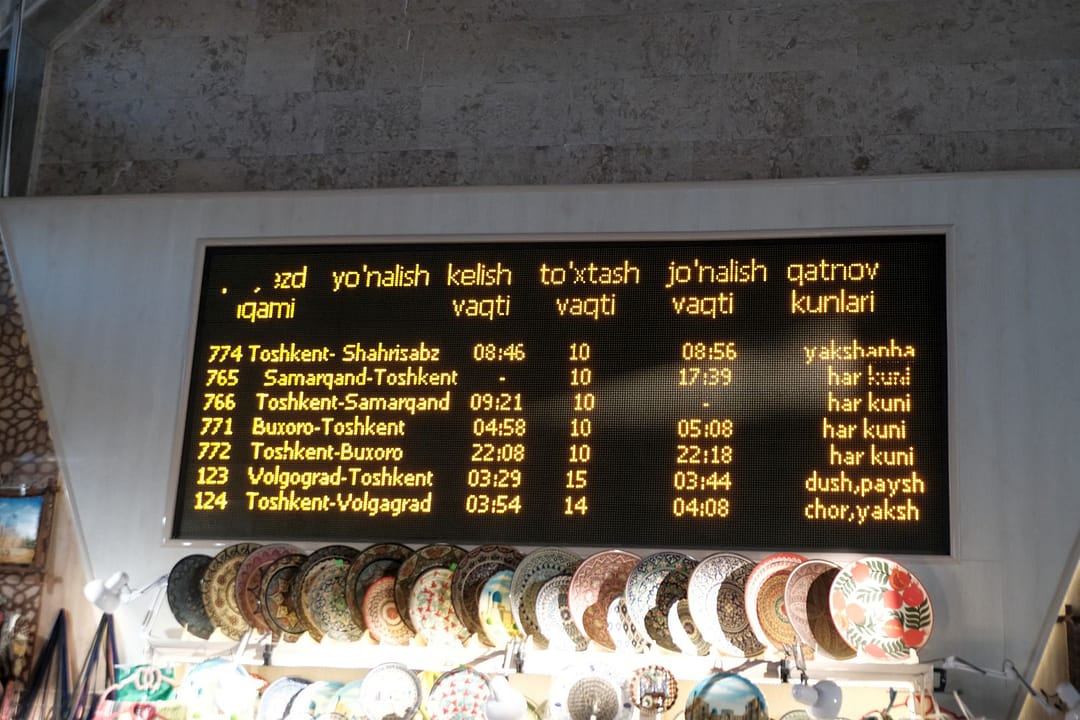 yo'nalish kelish to'xtash jo'nalish qatnov
vaqti vaqti vaqti kunlari
774 Toshkent- Shahrisabz 08:46 10 08:56 yakshanba
765 Samarqand-Toshkent - 10 17:39 har kuni
766 Toshkent-Samarqand 09:21 10 - har kuni
771 Buxoro-Toshkent 04:58 10 05:08 har kuni
772 Toshkent-Buxoro 22:08 10 22:18 har kuni
123 Volgograd-Toshkent 03:29 15 03:44 dush,paysh
124 Toshkent-Volgagrad 03:54 14 04:08 chor,yaksh